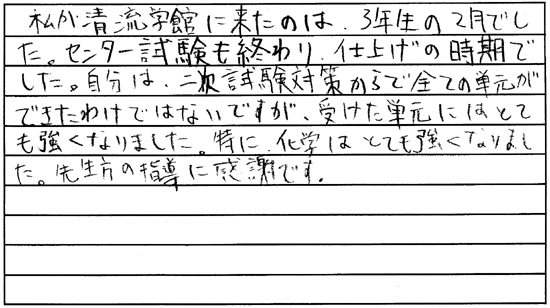 私が清流学館に来たのは、3年生の2月でし
た。センター試験も終わり、仕上げの時期で
した。自分は、二次試験対策からで全ての単元が
できたわけではないですが、受けた単元にはとて
も強くなりました。特に、化学はとても強くなりまし
た。先生方の指導に感謝です。